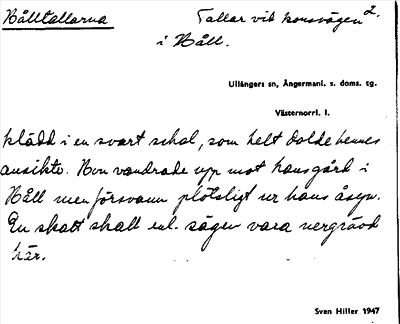 Nålltallarna Tallar vid konsvägen 2.
i Nåll.
Ullångers sn, Ångermanl. s. doms. tg.
Västernorrl. l.
klädd i en svart schal, som helt dolde hennes
ansikte. Hon vandrade upp mot hans gård i
Nåll men försvann plötsligt ur hans åsyn.
En skatt skall enl. sägen vara nergrävd
här.
Sven Hiller 1947